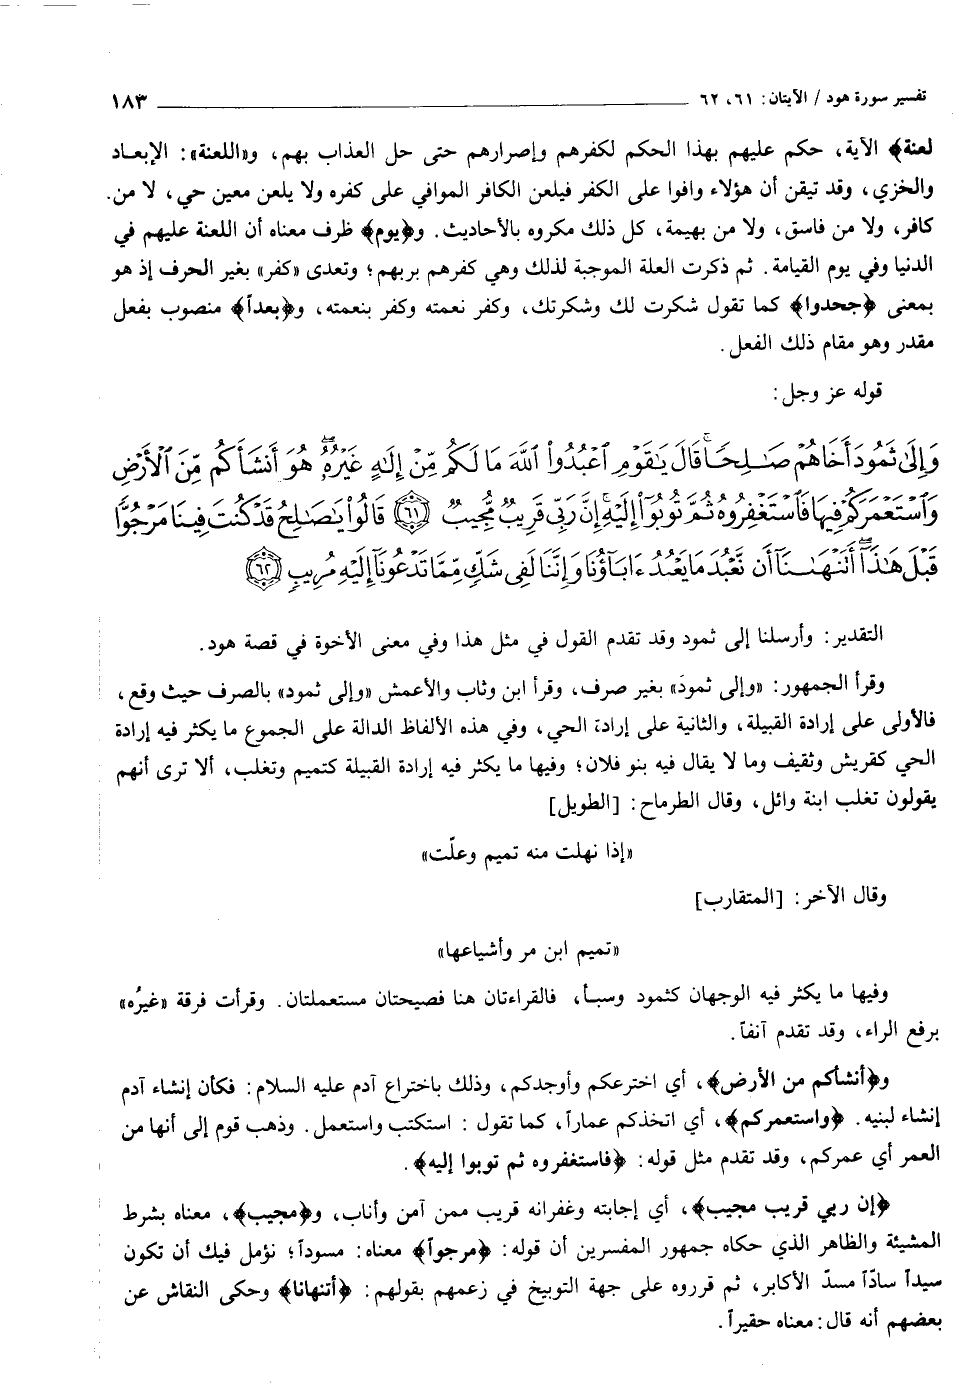 تفسير سورة هود / الآيتان: ٦١، ٦٢ ١٨٣
لعنة﴾ الآية، حكم عليهم بهذا الحكم لكفرهم وإصرارهم حتى حل العذاب بهم، و«اللعنة»: الإبعاد
والخزي، وقد تيقن أن هؤلاء وافوا على الكفر فيلعن الكافر الموافي على كفره ولا يلعن معين حي، لا من.
كافر، ولا من فاسق، ولا من بهيمة، كل ذلك مكروه بالأحاديث. و﴿يوم﴾ ظرف معناه أن اللعنة عليهم في
الدنيا وفي يوم القيامة. ثم ذكرت العلة الموجبة لذلك وهي كفرهم بربهم؛ وتعدى «كفر» بغير الحرف إذ هو
بمعنى ﴿جحدوا﴾ كما تقول شكرت لك وشكرتك، وكفر نعمته وكفر بنعمته، و﴿بعداً﴾ منصوب بفعل
مقدر وهو مقام ذلك الفعل.
قوله عز وجل:
وَإِلَىٰ ثَمُودَ أَخَاهُمْ صَـٰلِحًا ۚ قَالَ يَـٰقَوْمِ ٱعْبُدُوا۟ ٱللَّهَ مَا لَكُم مِّنْ إِلَـٰهٍ غَيْرُهُۥ ۖ هُوَ أَنشَأَكُم مِّنَ ٱلْأَرْضِ
وَٱسْتَعْمَرَكُمْ فِيهَا فَٱسْتَغْفِرُوهُ ثُمَّ تُوبُوٓا۟ إِلَيْهِ ۚ إِنَّ رَبِّى قَرِيبٌ مُّجِيبٌ ﴿٦١﴾ قَالُوا۟ يَـٰصَـٰلِحُ قَدْ كُنتَ فِينَا مَرْجُوًّا
قَبْلَ هَـٰذَآ ۖ أَتَنْهَـٰنَآ أَن نَّعْبُدَ مَا يَعْبُدُ ءَابَآؤُنَا وَإِنَّنَا لَفِى شَكٍّ مِّمَّا تَدْعُونَآ إِلَيْهِ مُرِيبٍ ﴿٦٢﴾
التقدير: وأرسلنا إلى ثمود وقد تقدم القول في مثل هذا وفي معنى الأخوة في قصة هود.
وقرأ الجمهور: «وإلى ثمودَ» بغير صرف، وقرأ ابن وثاب والأعمش «وإلى ثمود» بالصرف حيث وقع،
فالأولى على إرادة القبيلة، والثانية على إرادة الحي، وفي هذه الألفاظ الدالة على الجموع ما يكثر فيه إرادة
الحي كقريش وثقيف وما لا يقال فيه بنو فلان؛ وفيها ما يكثر فيه إرادة القبيلة كتميم وتغلب، ألا ترى أنهم
يقولون تغلب ابنة وائل، وقال الطرماح: [الطويل]
«إذا نهلت منه تميم وعلّت»
وقال الآخر: [المتقارب]
«تميم ابن مر وأشياعها»
وفيها ما يكثر فيه الوجهان كثمود وسبأ، فالقراءتان هنا فصيحتان مستعملتان. وقرأت فرقة «غيرُه»
برفع الراء، وقد تقدم آنفاً.
و﴿أنشأكم من الأرض﴾، أي اخترعكم وأوجدكم، وذلك باختراع آدم عليه السلام: فكأن إنشاء آدم
إنشاء لبنيه. ﴿واستعمركم﴾، أي اتخذكم عماراً، كما تقول: استكتب واستعمل. وذهب قوم إلى أنها من
العمر أي عمركم، وقد تقدم مثل قوله: ﴿فاستغفروه ثم توبوا إليه﴾.
﴿إن ربي قريب مجيب﴾، أي إجابته وغفرانه قريب ممن آمن وأناب، و﴿مجيب﴾، معناه بشرط
المشيئة والظاهر الذي حكاه جمهور المفسرين أن قوله: ﴿مرجواً﴾ معناه: مسوداً؛ نؤمل فيك أن تكون
سيداً سادّاً مسدّ الأكابر، ثم قرروه على جهة التوبيخ في زعمهم بقولهم: ﴿أتنهانا﴾ وحكى النقاش عن
بعضهم أنه قال: معناه حقيراً.